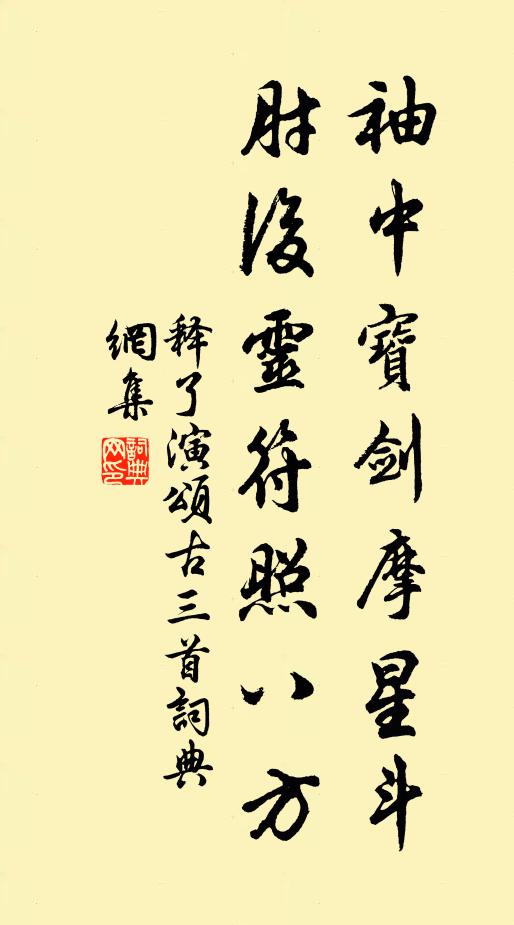 袖中寶劍摩星斗
肘後靈符照八方
釋了演頌古三首詞典
網集
詞典網印